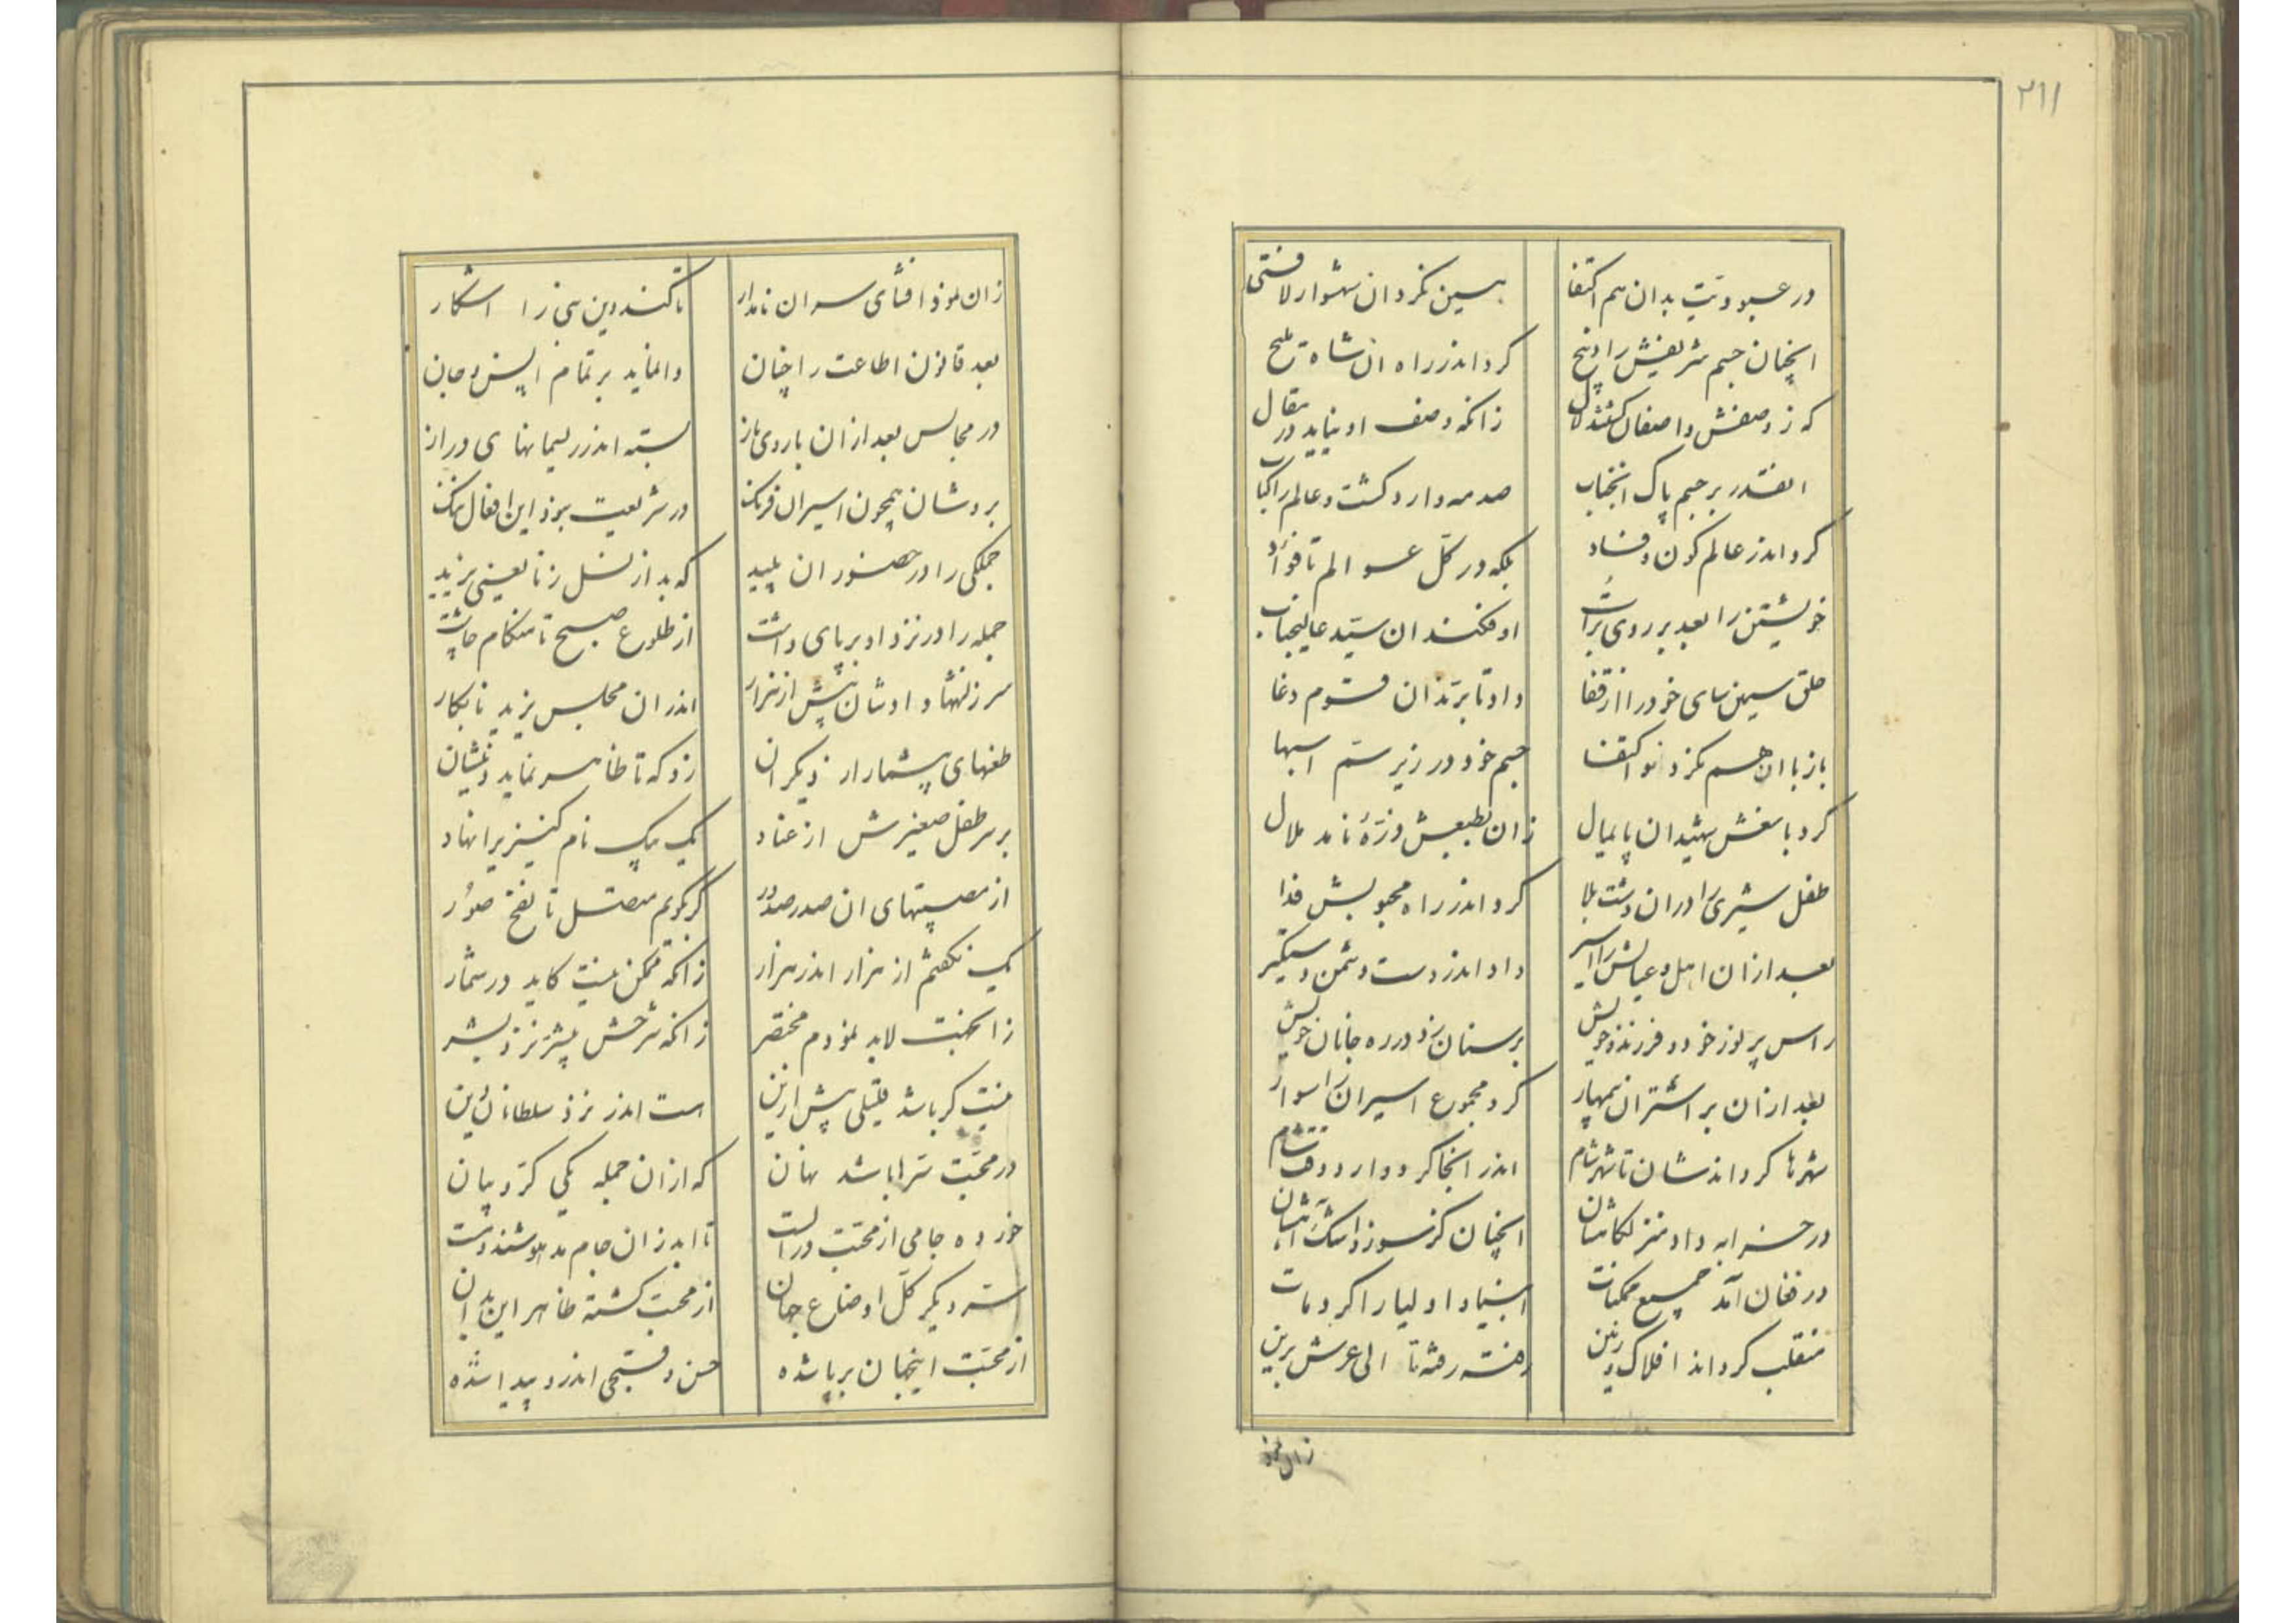 ۲۱۱
در عبودیت بدان هم اکتفا
بس نکرد ان شهسوار لافتی
انچنان جسم شریفش را ذبیح
کرد اندر راه ان شاه ملیح
که ز وصفش واصفان گشتند لال
زانکه وصف او نیاید در مقال
انقدر بر جسم پاک انجناب
صدمه وارد گشت و عالم را
کرد اندر عالم کون و فساد
بلکه در کل عوالم تا فؤاد
خویشتن را بعد بر روی تراب
او فکند ان سید عالیجناب
حلق سیمین سای خود را از قفا
داد تا برند ان قوم دغا
باز با ان هم نکرد او اکتفا
جسم خود در زیر سم اسبها
کرد با نعش شهیدان پایمال
زان بطبعش ذرهٔ نامد ملال
طفل شیری را دران دشت بلا
کرد اندر راه محبوبش فدا
بعد ازان اهل و عیالش را اسیر
داد اندر دست دشمن دستگیر
راس پر نور خود و فرزند خویش
بر سنان زد در ره جانان خویش
بعد ازان بر اشتران بیمهار
کرد مجموع اسیران را سوار
شهرها گرداندشان تا شهر شام
اندر انجا کرد وارد
در خرابه داد منزلگاشان
انچنان کز سوز اشک اهشان
در فغان آمد جمیع ممکنات
انبیاء و اولیا را کرد مات
منقلب گرداند افلاک و زمین
رفته رفته تا الی عرش برین
زان نمود
زان نمود افشای سر ان نامدار
تا کند دین نبی را اشکار
بعد قانون اطاعت را چنان
وانماید بر تمام انس و جان
در مجالس بعد ازان با روی باز
بسته اندر ریسمانهای دراز
بردشان همچون اسیران فرنگ
در شریعت بود این افعال ننگ
جملگی را در حضور ان پلید
که بد از نسل زنا یعنی یزید
جمله را در نزد او بر پای داشت
از طلوع صبح تا هنگام چاشت
سرزنشها دادشان بیش از هزار
اندران مجلس یزید نابکار
طعنهای بیشمار از دیگران
زد که تا ظاهر نماید
بر سر طفل صغیرش از عناد
یک بیک نام کنیزیرا نهاد
از مصیبتهای ان صدر صدور
گر بگویم متصل تا نفخ صور
یک نگفتم از هزار اندر هزار
زانکه ممکن نیست کاید در شمار
زا محبت لابد نمودم مختصر
زانکه شرحش بیشتر نزد بشر
نیست گر باشد قلیلی بیش ازین
هست اندر نزد سلطانان دین
در محبت سرها باشد نهان
که ازان جمله یکی کردم بیان
خورده جامی از محبت در الست
تا ابد زان جام مدهوشند و مست
سر دیگر کل اوضاع جهان
از محبت گشته ظاهر این بدان
از محبت اینجهان بر پا شده
حسن و قبحی اندرو پیدا شده